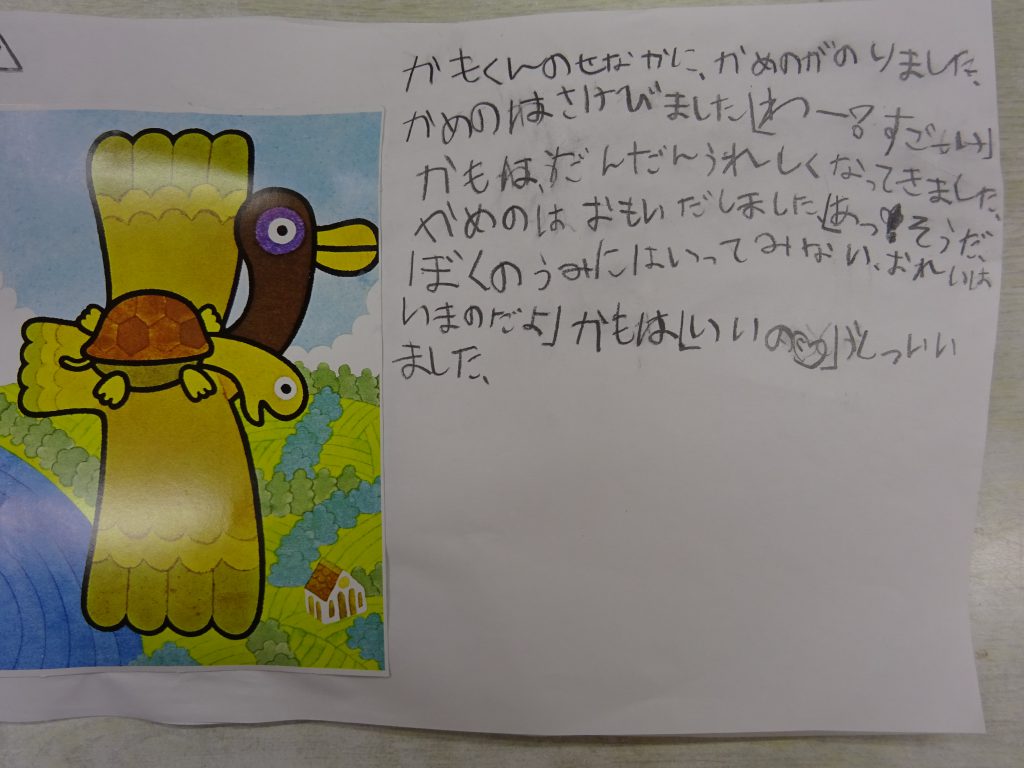 かもくんのせなかに、かめのがのりました、
かめのはさけびました「わつー。すごーい」
かもは、だんだんうれしくなってきました、
かめのは おもいだしました「あっ!そうだ、
ぼくのうみにはいってみない、おれいは
いまのだよ」かもは「いいの」といい
ました、